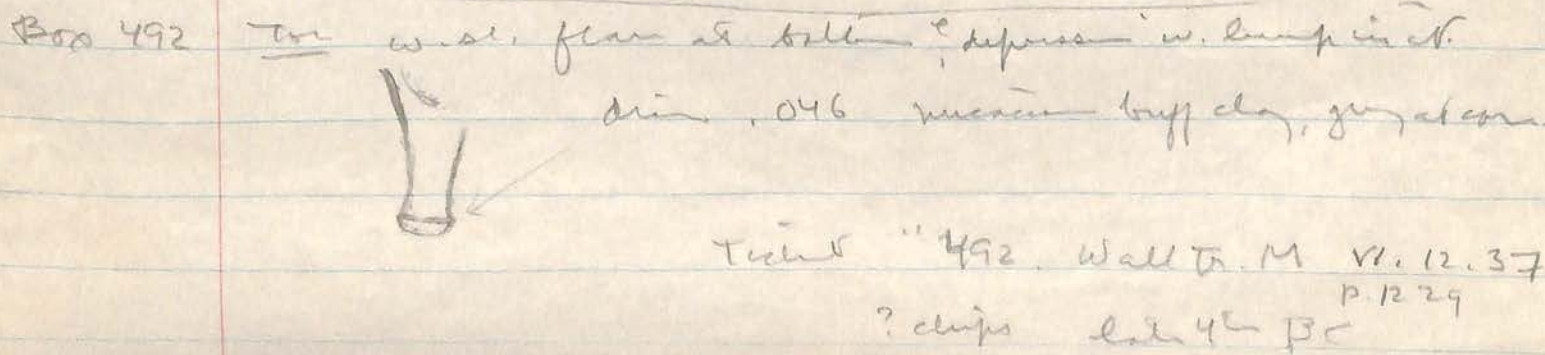 Box 492 Toe w. sl. flare at bottom & depression w. lump in it.
diam .046 micaceous buff clay, grey at core.
Ticket "492. Wall Tr. M VI.12.37
p. 1229
? chips late 4th BC